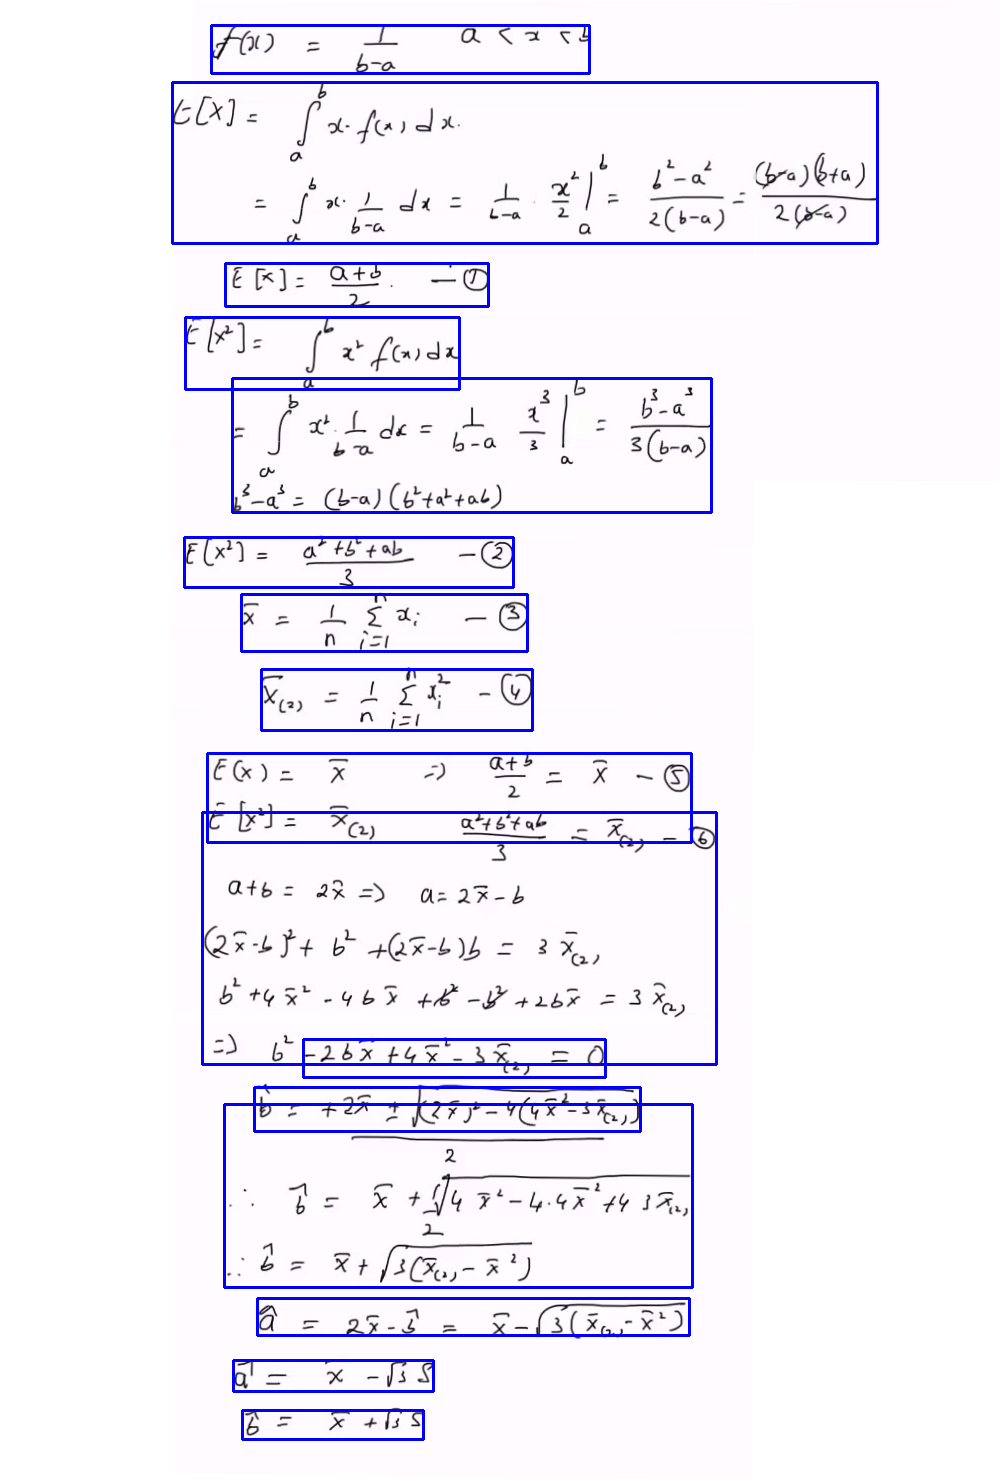 f(x) = 1/(b-a)   a < x < b
E[X] = ∫_a^b x. f(x) dx.
= ∫_a^b x. 1/(b-a) dx = 1/(b-a) . x²/2 |_a^b = (b²-a²)/(2(b-a)) = ((b-a)(b+a))/(2(b-a))
E[X] = (a+b)/2 . — ①
E[X²] = ∫_a^b x² f(x) dx
= ∫_a^b x². 1/(b-a) dx = 1/(b-a) x³/3 |_a^b = (b³-a³)/(3(b-a))
b³-a³ = (b-a)(b²+a²+ab)
E[X²] = (a²+b²+ab)/3 — ②
x̄ = 1/n Σ_{i=1}^n x_i — ③
x̄_(2) = 1/n Σ_{i=1}^n x_i² — ④
E(x) = x̄ ⇒ (a+b)/2 = x̄ — ⑤
E[x²] = x̄_(2)   (a²+b²+ab)/3 = x̄_(2) — ⑥
a+b = 2x̄ ⇒ a = 2x̄-b
(2x̄-b)² + b² + (2x̄-b)b = 3 x̄_(2)
b² + 4x̄² - 4bx̄ + b² - b² + 2bx̄ = 3 x̄_(2)
⇒ b² - 2bx̄ + 4x̄² - 3x̄_(2) = 0
b̂ = (+2x̄ ± √((2x̄)² - 4(4x̄²-3x̄_(2))))/2
∴ b̂ = x̄ + √(4x̄² - 4.4x̄² + 4 3x̄_(2))/2
∴ b̂ = x̄ + √(3(x̄_(2) - x̄²))
â = 2x̄ - b̂ = x̄ - √(3(x̄_(2) - x̄²))
â = x̄ - √3 S
b̂ = x̄ + √3 S